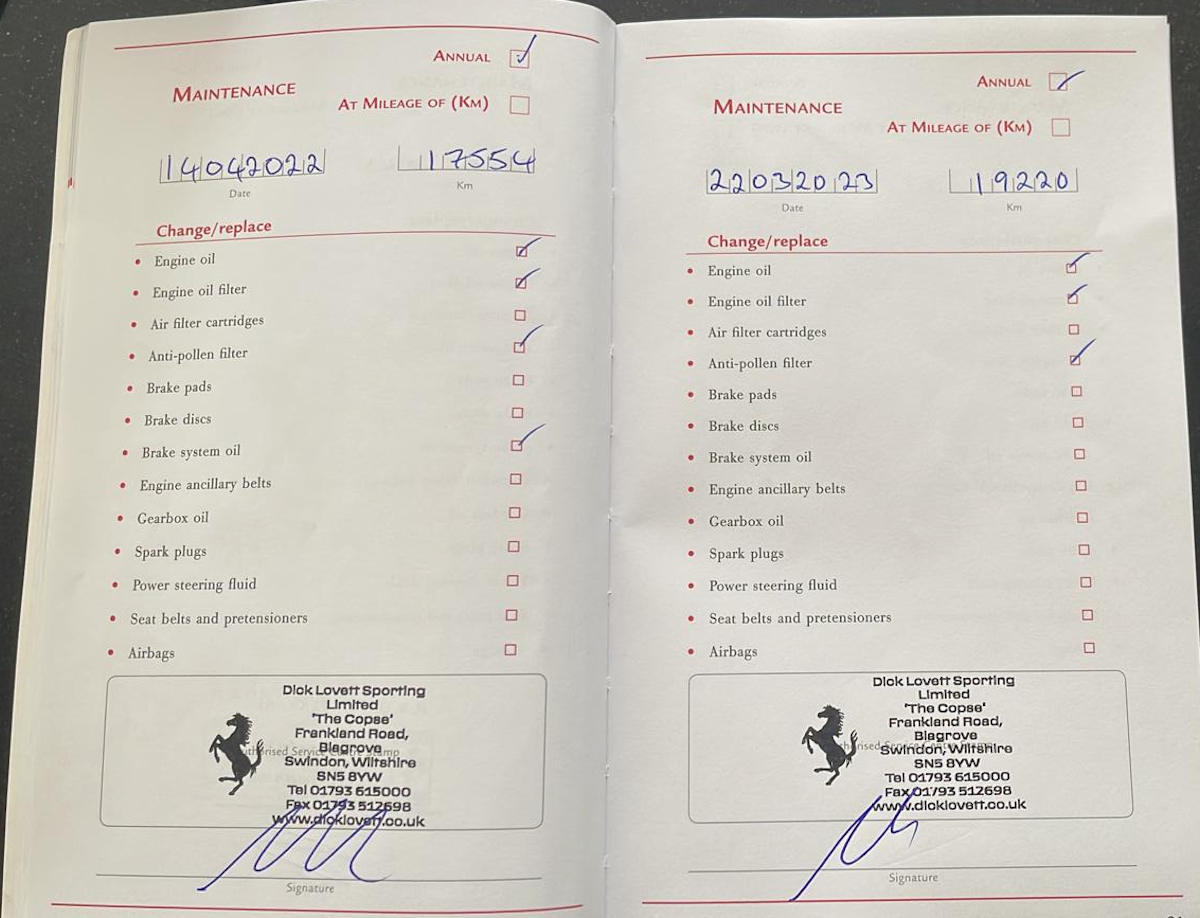 ANNUAL
MAINTENANCE
AT MILEAGE OF (KM)
14042022 17554
Date Km
Change/replace
• Engine oil
• Engine oil filter
• Air filter cartridges
• Anti-pollen filter
• Brake pads
• Brake discs
• Brake system oil
• Engine ancillary belts
• Gearbox oil
• Spark plugs
• Power steering fluid
• Seat belts and pretensioners
• Airbags
Dick Lovett Sporting
Limited
'The Copse'
Frankland Road,
Blagrove
Swindon, Wiltshire
SN5 8YW
Tel 01793 615000
Fax 01793 512698
www.dicklovett.co.uk
Signature
ANNUAL
MAINTENANCE
AT MILEAGE OF (KM)
22032023 19220
Date Km
Change/replace
• Engine oil
• Engine oil filter
• Air filter cartridges
• Anti-pollen filter
• Brake pads
• Brake discs
• Brake system oil
• Engine ancillary belts
• Gearbox oil
• Spark plugs
• Power steering fluid
• Seat belts and pretensioners
• Airbags
Dick Lovett Sporting
Limited
'The Copse'
Frankland Road,
Blagrove
Swindon, Wiltshire
SN5 8YW
Tel 01793 615000
Fax 01793 512698
www.dicklovett.co.uk
Signature